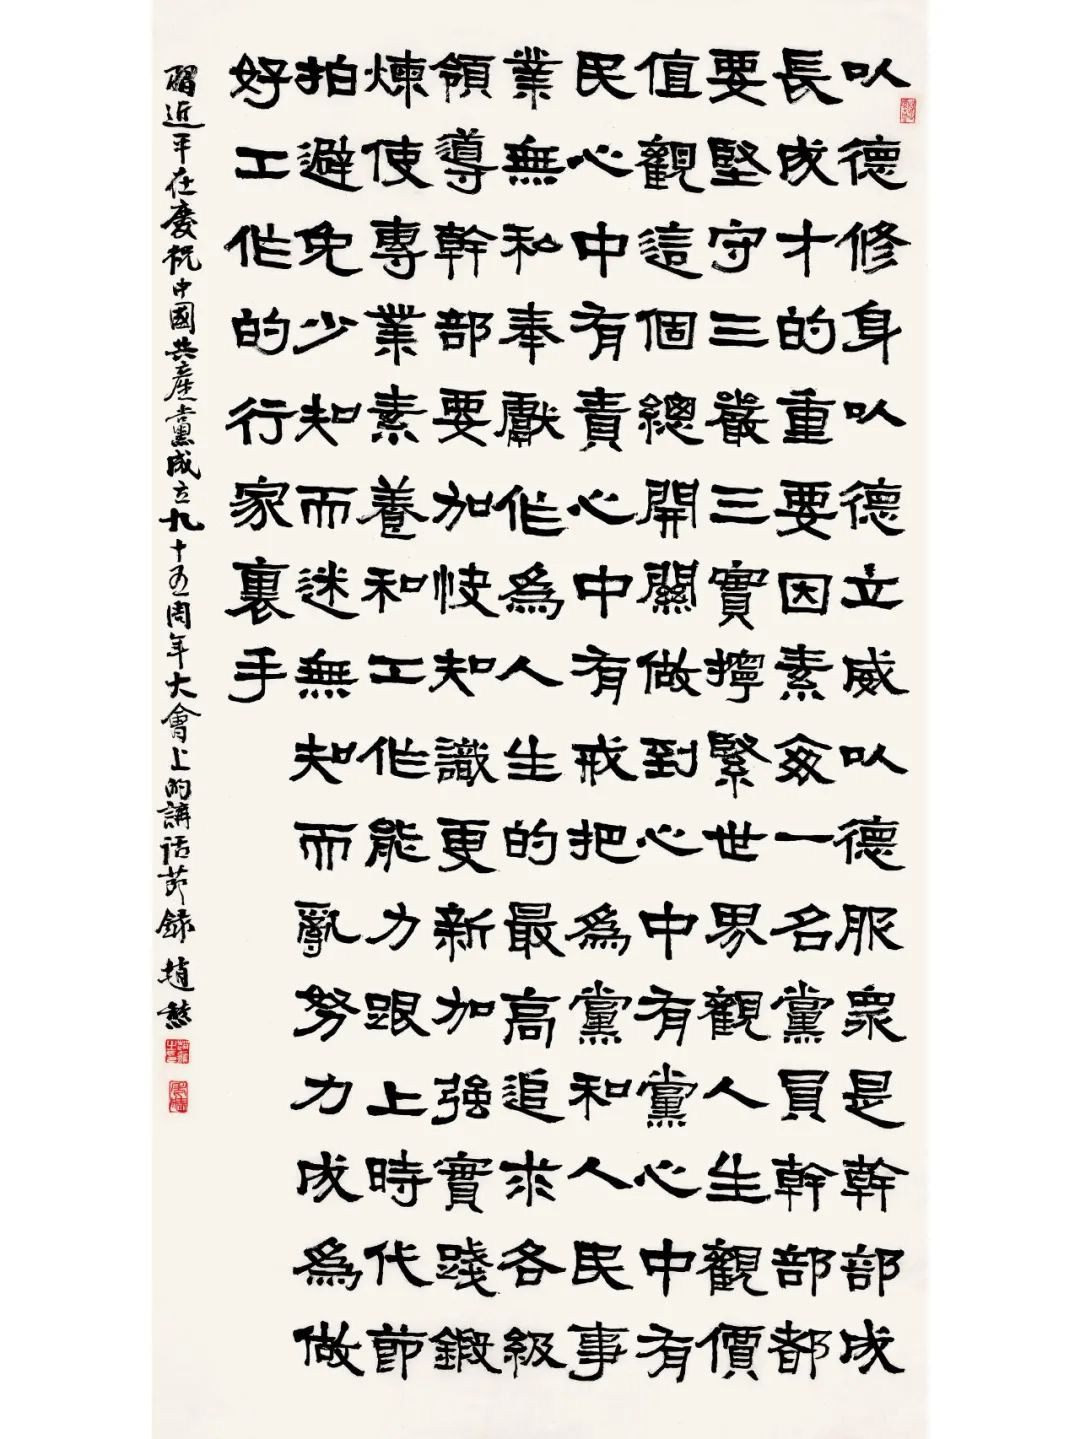 以德修身以德立威以德服眾是幹部成
長成才的重要因素每一名黨員幹部都
要堅守三嚴三實擰緊世界觀人生觀價
值觀這個總開關做到心中有黨心中有
民心中有責心中有戒把為黨和人民事
業無私奉獻作為人生的最高追求各級
領導幹部要加快知識更新加強實踐鍛
煉使專業素養和工作能力跟上時代節
拍避免少知而迷無知而亂努力成為做
好工作的行家裏手
習近平在慶祝中國共產黨成立九十五周年大會上的講話節錄 趙